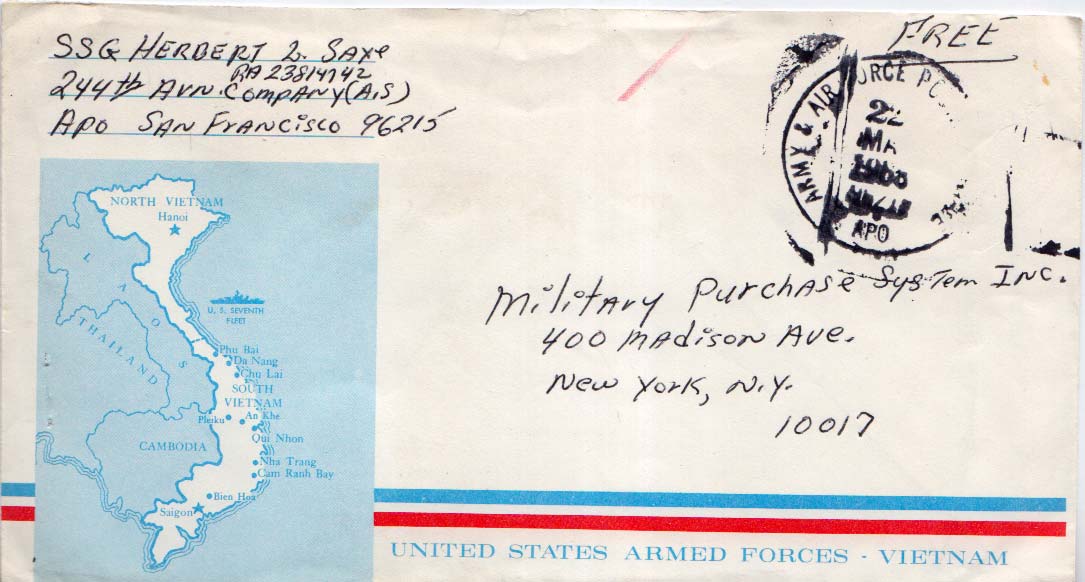 SSG HERBERT L. SAXe
RA 23814742
244th AVN. COMPANY (A.S)
APO SAN FRANCISCO 96215
FREE
ARMY & AIR FORCE
APO
Military Purchase System Inc.
400 Madison Ave.
New York, N.Y.
10017
NORTH VIETNAM
Hanoi
LAOS
THAILAND
U. S. SEVENTH
FLEET
Phu Bai
Da Nang
Chu Lai
SOUTH
VIETNAM
Pleiku
An Khe
Qui Nhon
CAMBODIA
Nha Trang
Cam Ranh Bay
Bien Hoa
Saigon
UNITED STATES ARMED FORCES - VIETNAM